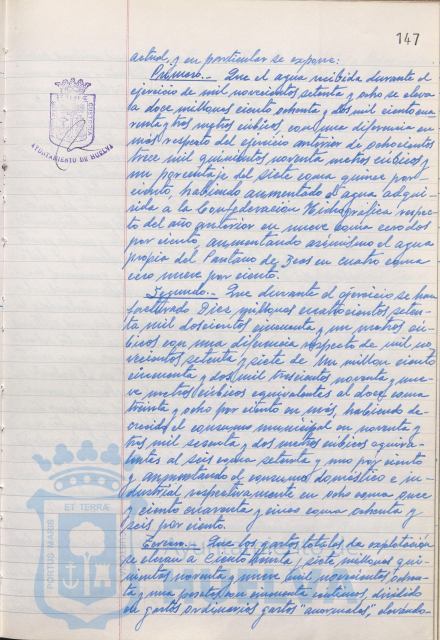 147
actual, y en particular se expone:
Primero.- Que el agua recibida durante el
ejercicio de mil novecientos setenta y ocho se eleva
a doce millones ciento ochenta y dos mil ciento cua
renta y tres metros cúbicos, con una diferencia en
más respecto del ejercicio anterior de ochocientos
trece mil quinientos noventa metros cúbicos y
un porcentaje del siete coma quince por
ciento, habiendo aumentado el agua adqui-
rida a la Confederación Hidrográfica respec-
to del año anterior en nueve coma cero dos
por ciento, aumentando asimismo el agua
propia del Pantano de Beas en cuatro coma
cero nueve por ciento.
Segundo.- Que durante el ejercicio se han
facturado Diez millones cuatrocientos seten-
ta mil doscientos cincuenta y un metros cú-
bicos con una diferencia respecto de mil no-
vecientos setenta y siete de Un millon ciento
cincuenta y dos mil trescientos noventa y nue-
ve metros cúbicos equivalentes al doce coma
treinta y ocho por ciento en más, habiendo de-
crecido el consumo municipal en noventa y
tres mil sesenta y dos metros cúbicos equiva-
lentes al seis coma setenta y uno por ciento
y aumentando el consumo doméstico e in-
dustrial respectivamente en ocho coma once
y ciento cuarenta y cinco coma ochenta y
seis por ciento.
Tercero.- Que los gastos totales de explotación
se elevan a Ciento treinta y siete millones qui-
nientos noventa y nueve mil novecientos ochen-
ta y una pesetas con cincuenta céntimos, dividido
en gastos ordinarios gastos "anormales", elevándo-
AYUNTAMIENTO DE HUELVA
PORTUS MARIS
ET TERRAE